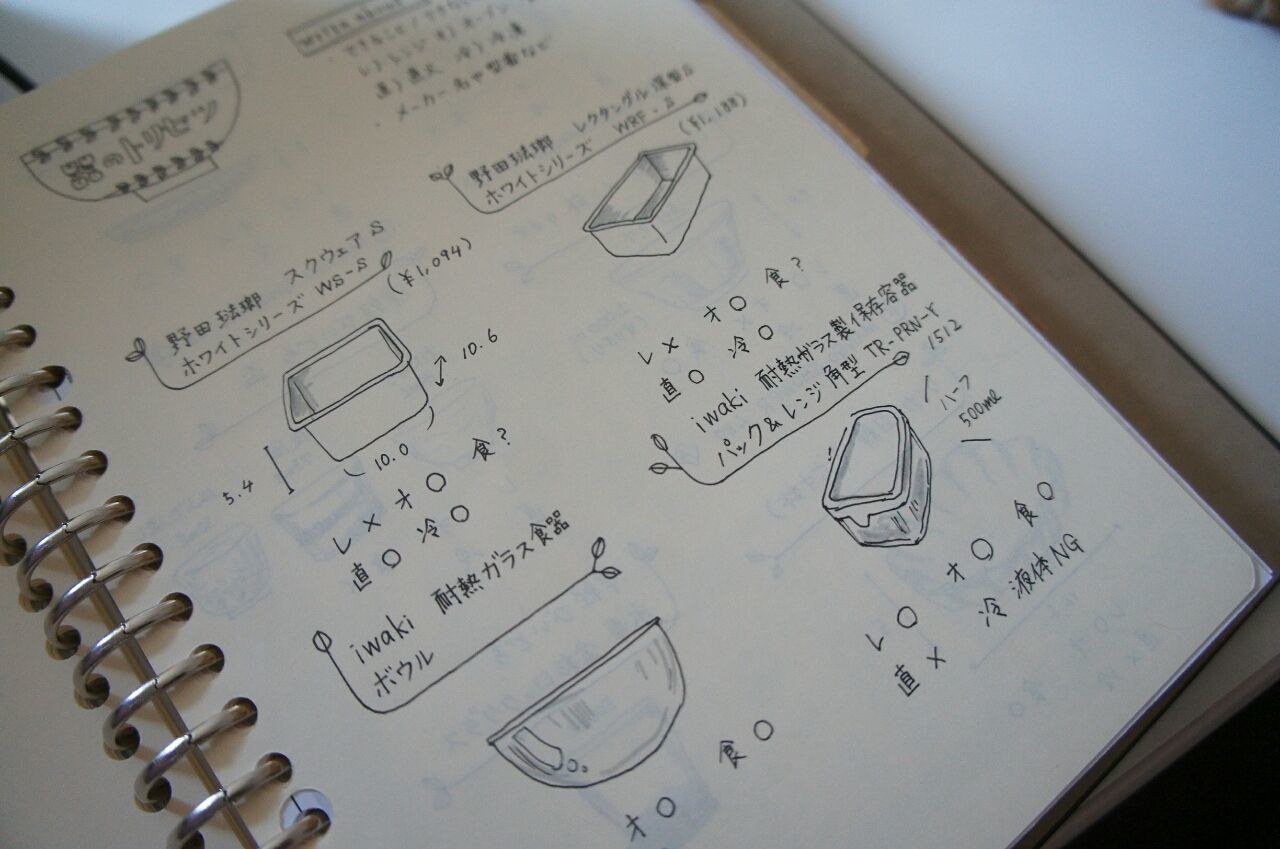 器のトリセツ
レ) レンジ オ) オーブン
直) 直火 冷) 冷凍
・メーカー名や型番など
野田琺瑯 スクウェア S
ホワイトシリーズ WS-S
(¥1,094)
10.6
10.0
5.4
レ × オ ○ 食 ?
直 ○ 冷 ○
野田琺瑯 レクタングル深型S
ホワイトシリーズ WRF-S
(¥1,188)
レ × オ ○ 食 ?
直 ○ 冷 ○
iwaki 耐熱ガラス製保存容器
パック&レンジ 角型 TR-PRN-Y
1512
ハーフ
500ml
レ ○ オ ○ 食 ○
直 × 冷 液体NG
iwaki 耐熱ガラス食器
ボウル
オ ○ 食 ○